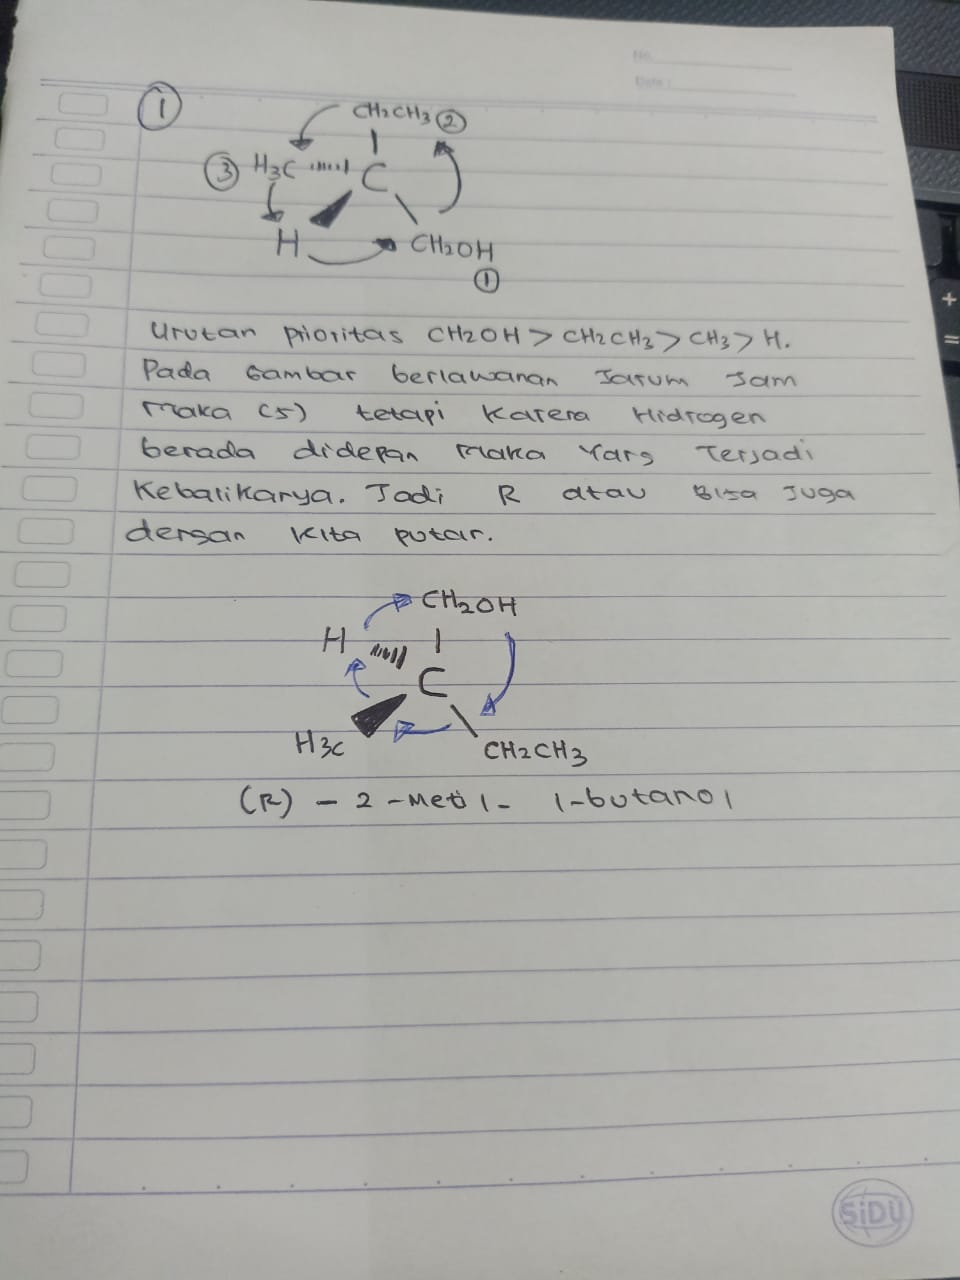 No.
Date :
①
CH2CH3 ②
③ H3C C
H CH2OH
①
Urutan prioritas CH2OH > CH2CH3 > CH3 > H.
Pada Gambar berlawanan Jarum Jam
Maka (S) tetapi Karena Hidrogen
berada didepan Maka Yang Terjadi
Kebalikanya. Jadi R atau Bisa Juga
dengan Kita putar.
CH2OH
H
C
H3C CH2CH3
(R) - 2 -Metil- 1-butanol
SiDU
+
=